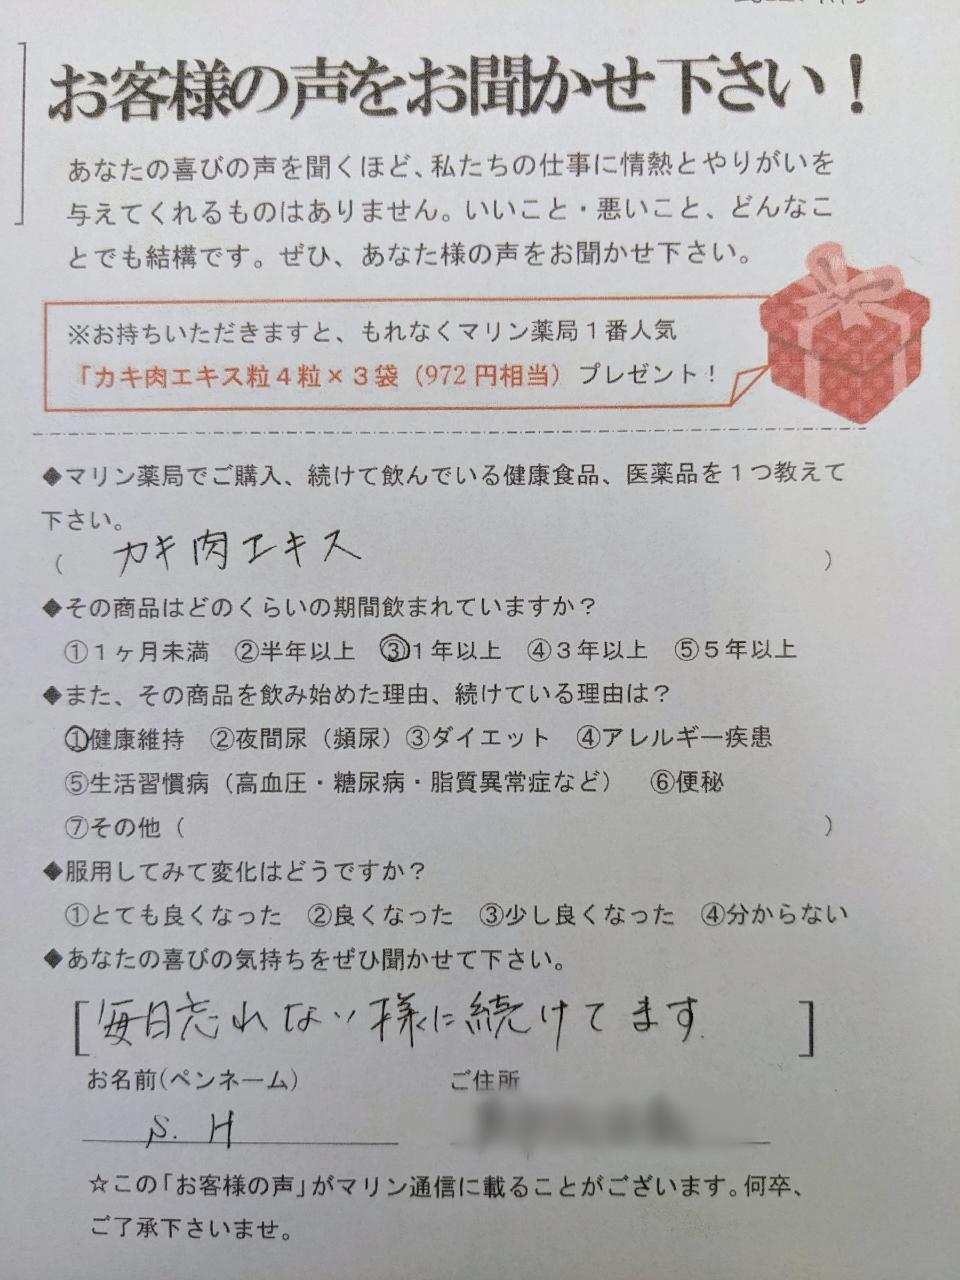 お客様の声をお聞かせ下さい！
あなたの喜びの声を聞くほど、私たちの仕事に情熱とやりがいを
与えてくれるものはありません。いいこと・悪いこと、どんなこ
とでも結構です。ぜひ、あなた様の声をお聞かせ下さい。
※お持ちいただきますと、もれなくマリン薬局１番人気
「カキ肉エキス粒４粒×３袋（972円相当）プレゼント！
◆マリン薬局でご購入、続けて飲んでいる健康食品、医薬品を１つ教えて
下さい。
（ カキ肉エキス ）
◆その商品はどのくらいの期間飲まれていますか？
①１ヶ月未満 ②半年以上 ③１年以上 ④３年以上 ⑤５年以上
◆また、その商品を飲み始めた理由、続けている理由は？
①健康維持 ②夜間尿（頻尿）③ダイエット ④アレルギー疾患
⑤生活習慣病（高血圧・糖尿病・脂質異常症など） ⑥便秘
⑦その他（ ）
◆服用してみて変化はどうですか？
①とても良くなった ②良くなった ③少し良くなった ④分からない
◆あなたの喜びの気持ちをぜひ聞かせて下さい。
[毎日忘れない様に続けてます. ]
お名前(ペンネーム) ご住所
S. H
☆この「お客様の声」がマリン通信に載ることがございます。何卒、
ご了承下さいませ。